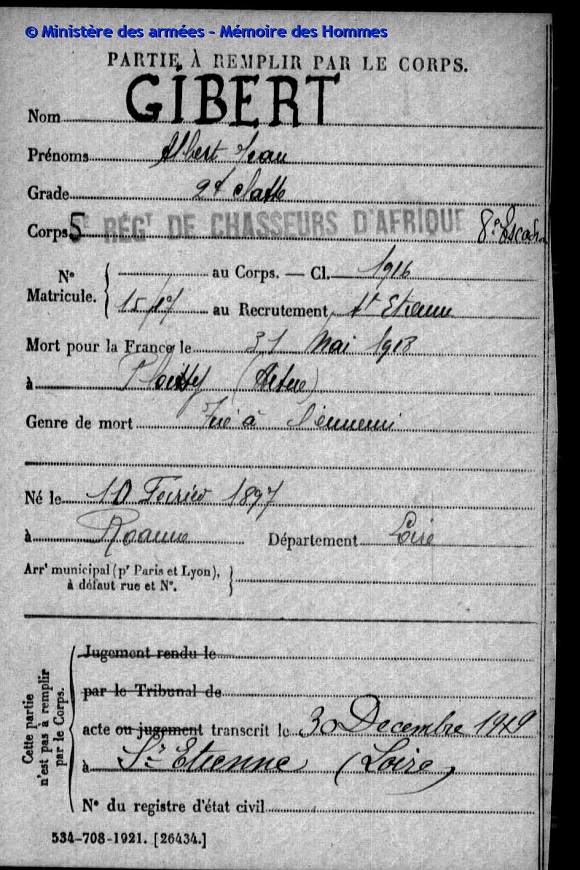 © Ministère des armées - Mémoire des Hommes
PARTIE À REMPLIR PAR LE CORPS.
Nom GIBERT
Prénoms Albert Jean
Grade 2e classe
Corps 5e RÉGT DE CHASSEURS D'AFRIQUE 8e Escadron
N° Matricule.
au Corps. — Cl. 1916
1517 au Recrutement St Etienne
Mort pour la France le 31 Mai 1918
à Ploisy (Aisne)
Genre de mort Tué à l'ennemi
Né le 10 Février 1897
à Roanne Département Loire
Arrt municipal (pr Paris et Lyon),
à défaut rue et N°.
Cette partie n'est pas à remplir par le Corps.
Jugement rendu le
par le Tribunal de
acte ou jugement transcrit le 30 Decembre 1919
à St Etienne (Loire)
N° du registre d'état civil
534-708-1921. [26434.]